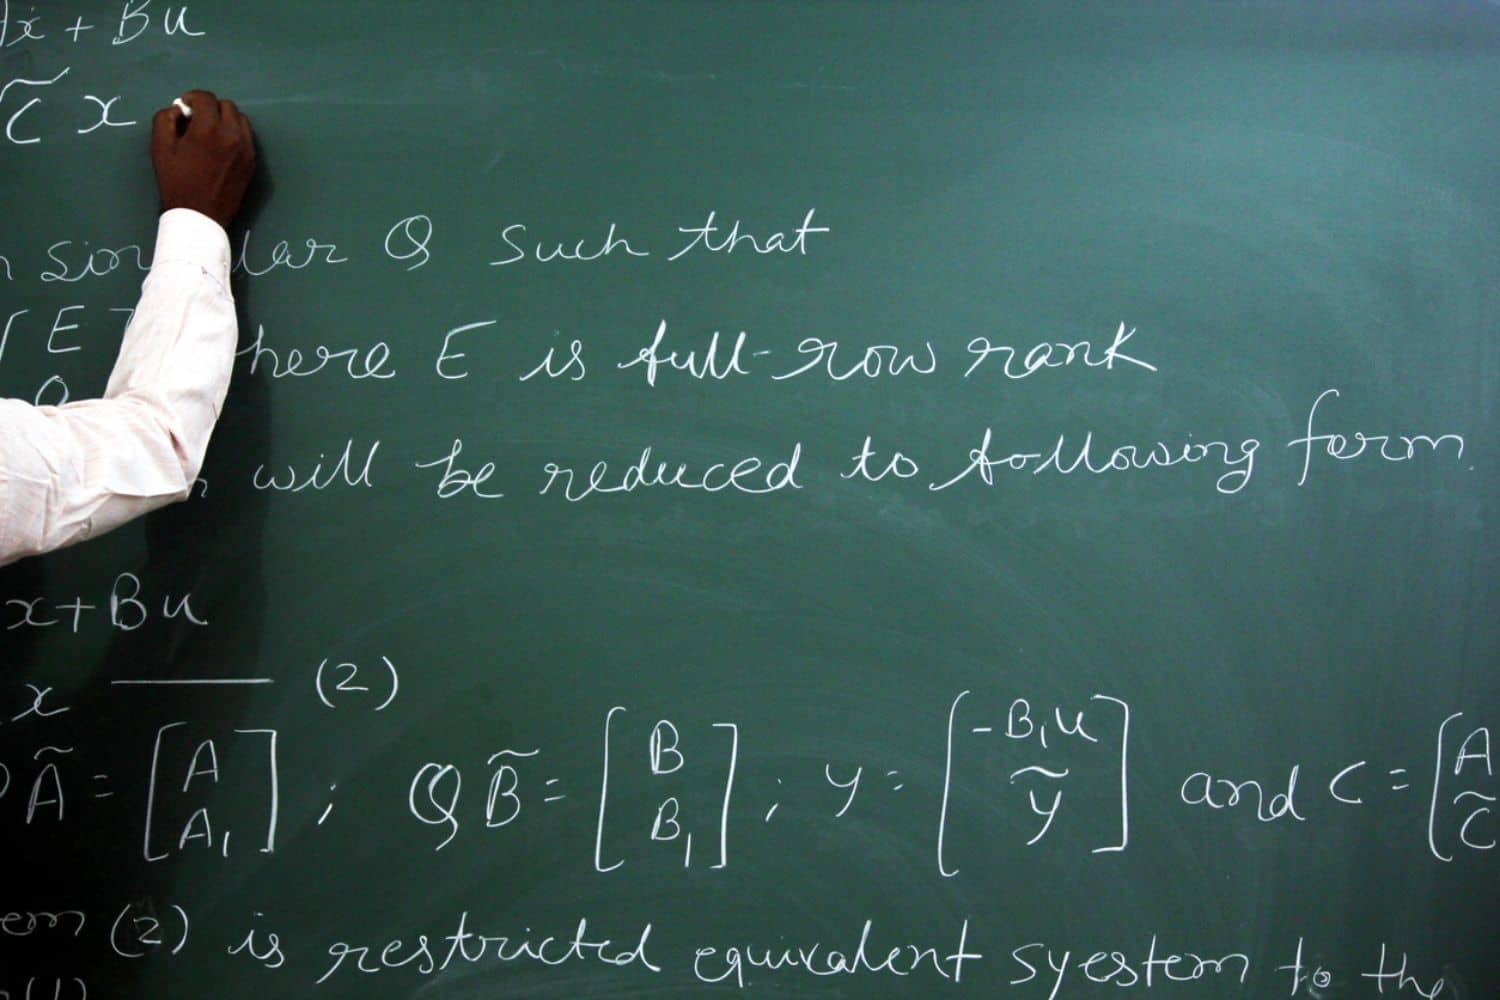 ẋ + Bu
C̃ x
lar Q such that
[ E here E is full-row rank
0
will be reduced to following form.
x + Bu
x —— (2)
Ã = [ A A₁ ] ; Q B̃ = [ B B₁ ] ; y = [ -B₁u ỹ ] and C = [ A C̃
em (2) is restricted equivalent syestem to the
(1)